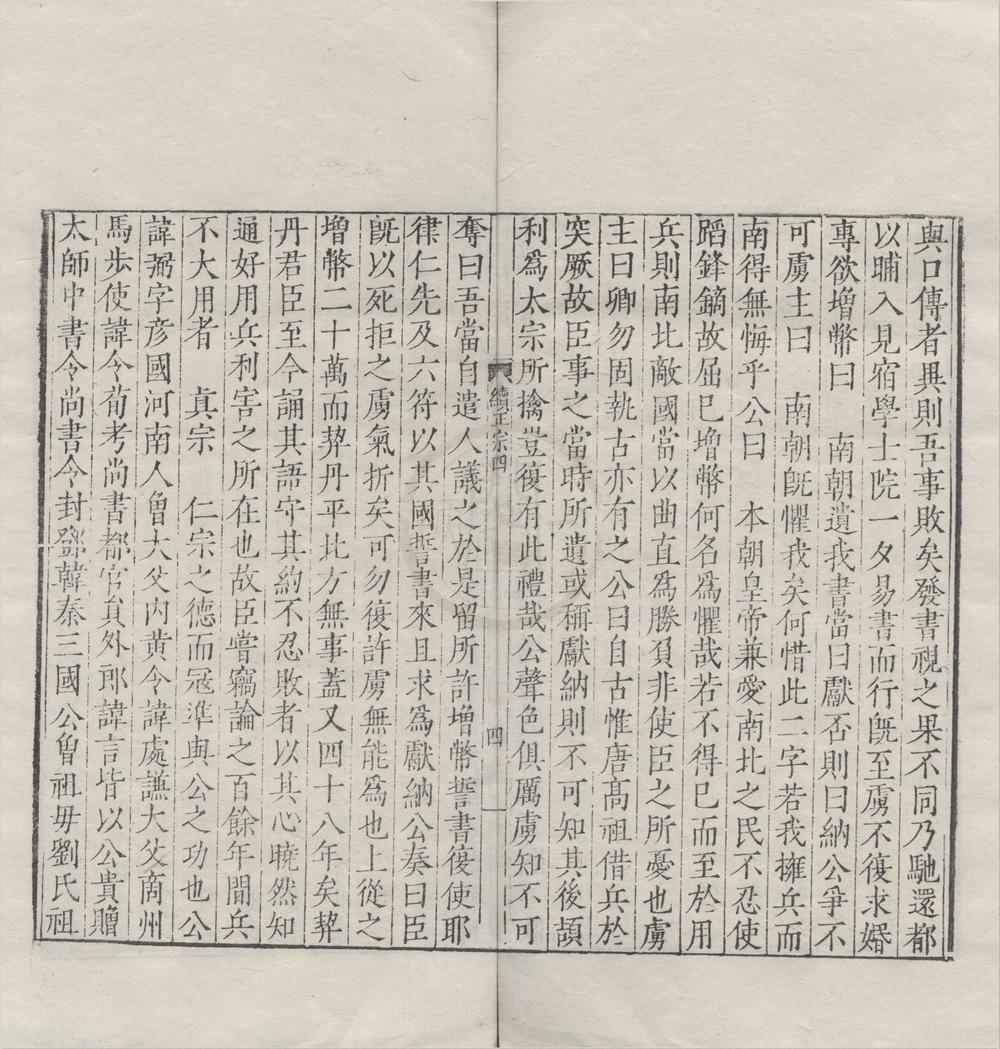 與口傳者異則吾事敗矣發書視之果不同乃馳還都
以晡入見宿學士院一夕易書而行旣至虜不復求婚
專欲增幣曰　南朝遺我書當曰獻否則曰納公爭不
可虜主曰　南朝旣懼我矣何惜此二字若我擁兵而
南得無悔乎公曰　本朝皇帝兼愛南北之民不忍使
蹈鋒鏑故屈已增幣何名爲懼哉若不得已而至於用
兵則南北敵國當以曲直爲勝負非使臣之所憂也虜
主曰卿勿固執古亦有之公曰自古惟唐髙祖借兵於
突厥故臣事之當時所遺或稱獻納則不可知其後頡
利爲太宗所擒豈復有此禮哉公聲色俱厲虜知不可
續正宗四
四
奪曰吾當自遣人議之於是留所許增幣誓書復使耶
律仁先及六符以其國誓書來且求爲獻納公奏曰臣
旣以死拒之虜氣折矣可勿復許虜無能爲也上從之
增幣二十萬而契丹平北方無事蓋又四十八年矣契
丹君臣至今誦其語守其約不忍敗者以其心曉然知
通好用兵利害之所在也故臣嘗竊論之百餘年間兵
不大用者　真宗　仁宗之德而冦準與公之功也公
諱弼字彦國河南人曾大父內黄令諱處謙大父商州
馬步使諱令荀考尚書都官員外郎諱言皆以公貴贈
太師中書令尚書令封鄧韓秦三國公曾祖母劉氏祖